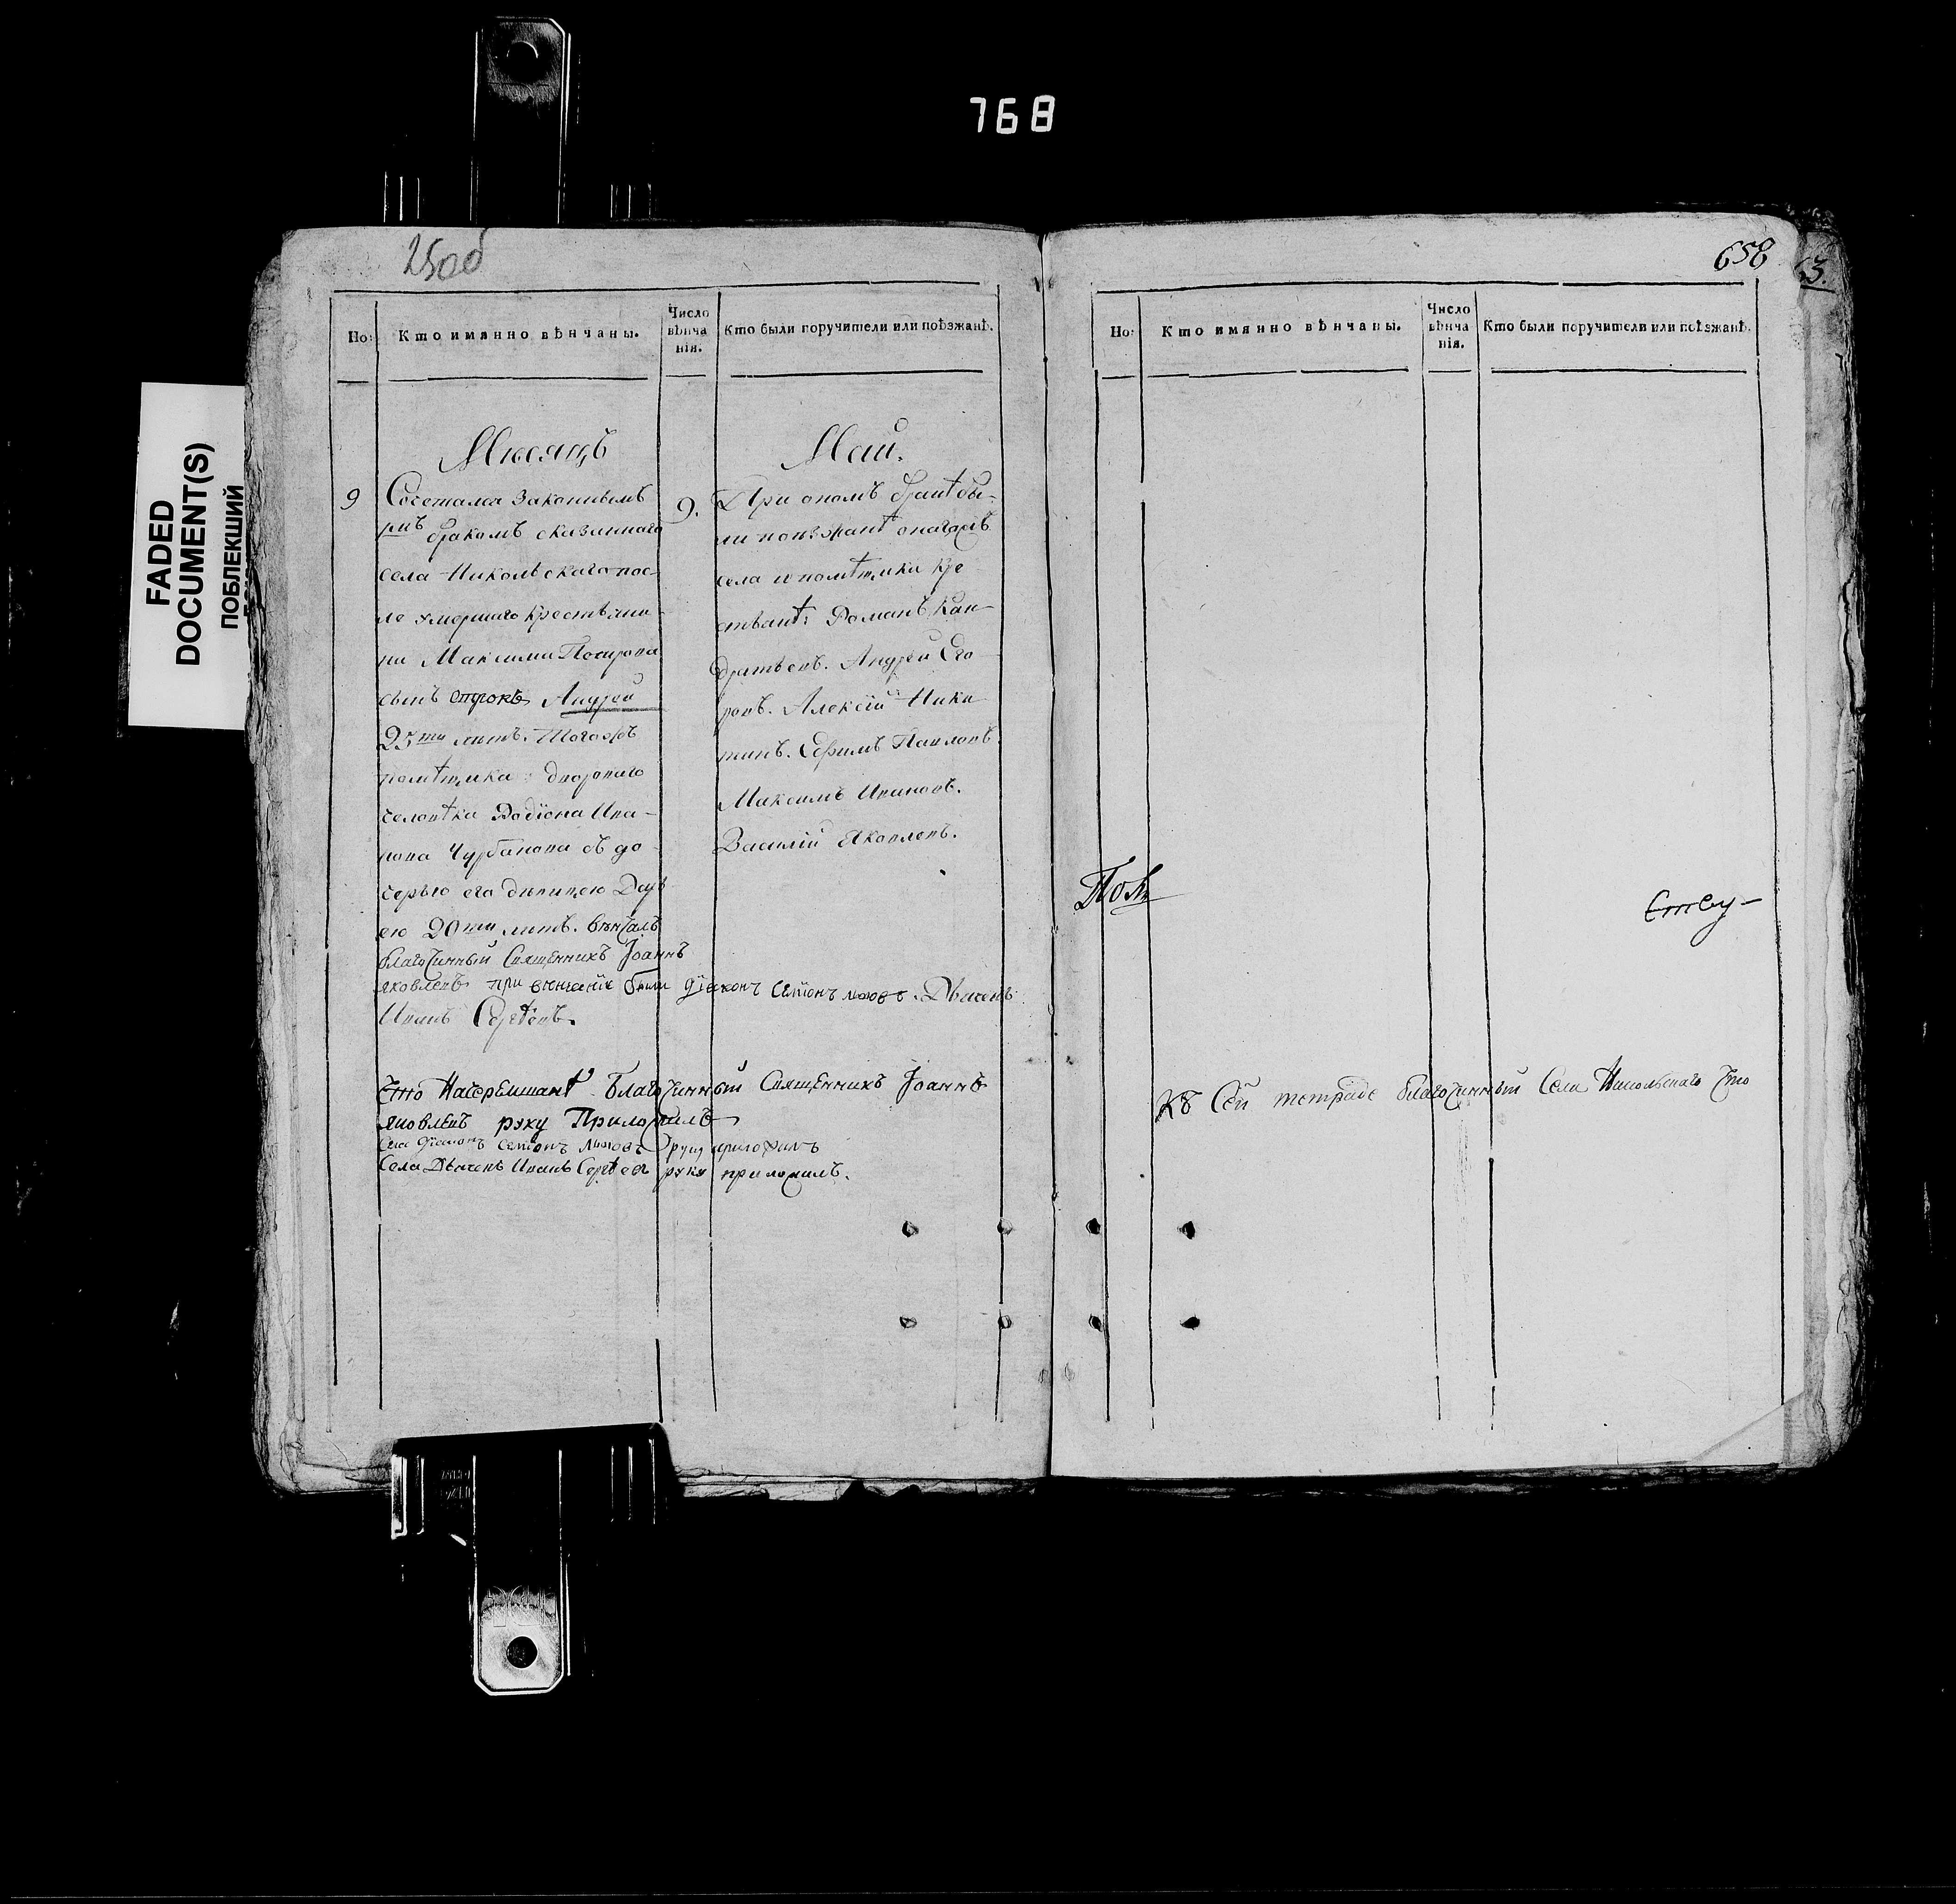 768
FADED
DOCUMENT(S)
ПОБЛЕКШИЙ
250б
Но:
Кто имянно вѣнчаны.
Число вѣнча нія.
Кто были поручители или поѣзжанѣ.
Мѣсяцъ
Маій.
9
Сочетался законнымъ
рмъ бракомъ сказаннаго
села Никольскаго пос-
ле умершаго крестьяни-
на Максима
сынъ отрокъ Андрей
25ти лѣтъ. Тогожъ
помѣщика дворового
человѣка Родіона Ива-
нова Чурбанова съ до-
черью его дѣвицею Дарь
ею 20ти лѣтъ. вѣнчалъ
благочинный Священникъ Іоаннъ
яковлевъ при вѣнчаніе были діаконъ Семіонъ . Дьячекъ
Иванъ Сергѣевъ.
9.
При ономъ бракѣ бы-
ли поѣзжанѣ онагожъ
села и помѣщика кре
стьянѣ: Романъ Кон-
дратьевъ. Андрей Его-
ровъ. Алексѣй Ники
тинъ. Ефимъ Павловъ.
Максимъ Ивановъ.
Василій Яковлевъ.
Благочинный Священникъ Іоаннъ
яковлевъ руку Приложилъ
діаконъ Семіонъ руку приложилъ
Села Дьячекъ Иванъ Сергѣевъ руку приложилъ.
658
3.
Но:
Кто имянно вѣнчаны.
Число вѣнча нія.
Кто были поручители или поѣзжанѣ.
ству-
Къ Сей тетраде благочинный Села Никольскаго Что